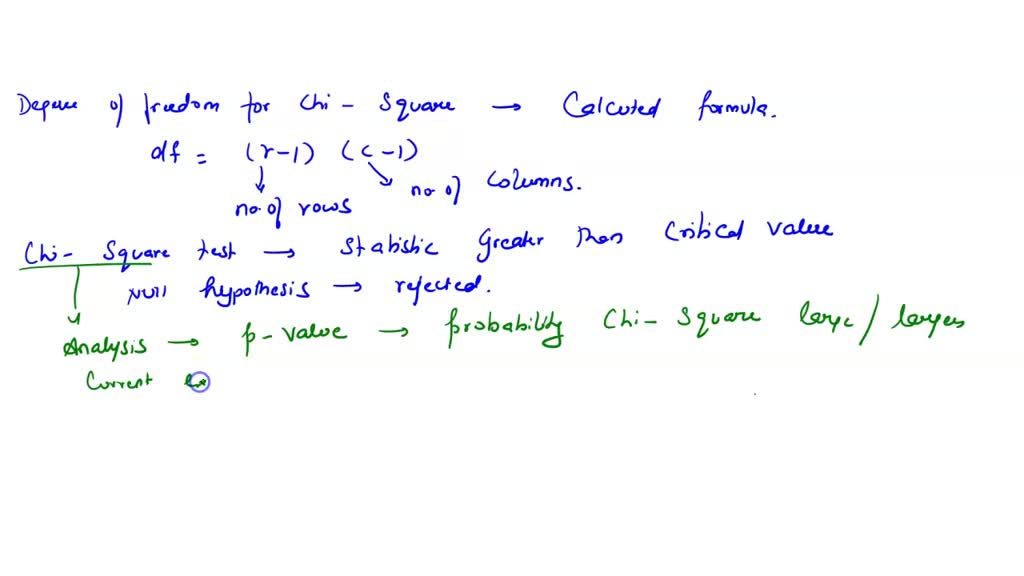 Degree of freedom for Chi - Square → Calcuted formula.
df = (r-1) (c-1)
no. of rows
no. of Columns.
Chi - Square test → Statistic Greater than Critical value
Null hypothesis → rejected.
Analysis → p-value → probability Chi - Square large / larger
Current